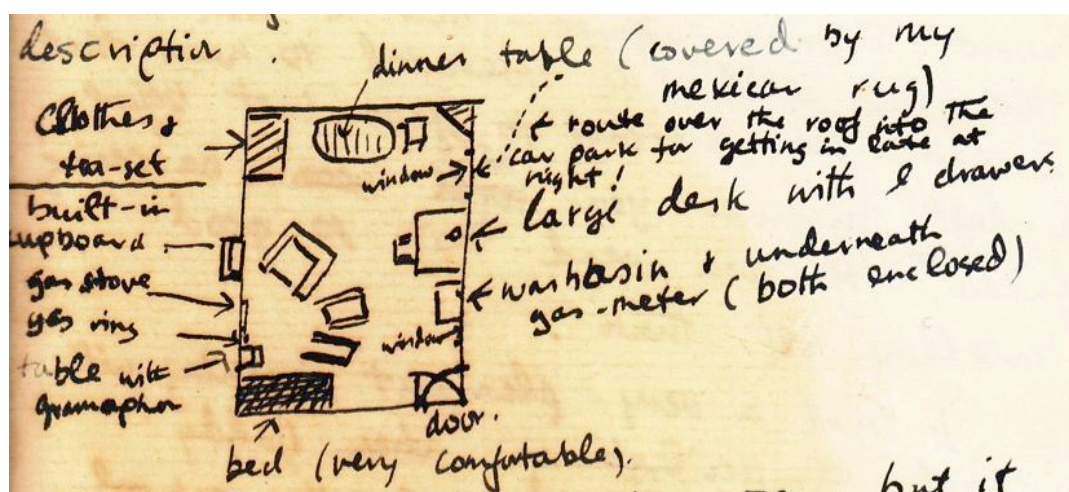 description.
dinner table (covered by my
mexican rug)
Clothes &
tea-set
← route over the roof into the
car park for getting in late at
night!
window
built-in
cupboard
← large desk with drawers
gas stove
gas ring
← washbasin & underneath
gas-meter (both enclosed)
window
table with
gramophon
door.
bed (very comfortable).
but it